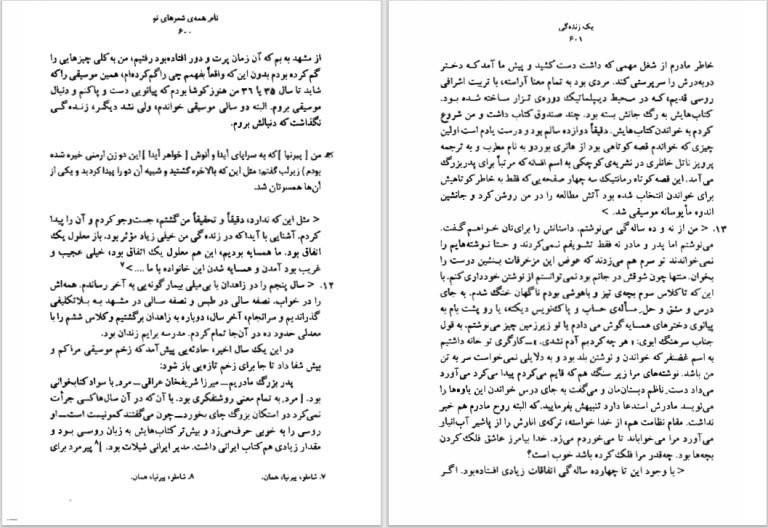 نام همه‌ی شعرهای تو
۶۰۰
از مشهد به بم که آن زمان پرت و دور افتاده بود رفتیم، من به کلی چیزهایی را
گم کرده بودم بدون این که واقعاً بفهمم چی را گم کرده‌ام، همین موسیقی را که
شاید تا سال ۳۵ یا ۳۶ من هنوز کوشا بودم که پیانویی دست و پا کنم و دنبال
موسیقی بروم. البته دو سالی موسیقی خواندم، ولی نشد دیگر، زنده‌گی
نگذاشت که دنبالش بروم.
من [ پیرنیا ] که به سراپای آیدا و آنوش [ خواهر آیدا ] این دو زن ارمنی خیره شده
بودم) زیر لب گفتم: مثل این که بالاخره گشتید و شبیه آن دو را پیدا کردید و یکی از
آن‌ها همسرتان شد.
< مثل این که ندارد، دقیقاً و تحقیقاً من گشتم، جست‌وجو کردم و آن را پیدا
کردم. آشنایی با آیدا که در زنده‌گی من خیلی زیاد مؤثر بود. باز معلول یک
اتفاق بود. ما همسایه بودیم، این هم معلول یک اتفاق بود، خیلی عجیب و
غریب بود آمدن و همسایه شدن این خانواده با ما .... >۷
۱۲. < سال پنجم را در زاهدان با بی‌میلی بیمارگونه‌یی به آخر رساندم. همه‌اش
را در خواب. نصفه سالی در طبس و نصفه سالی در مشهد به بلاتکلیفی
گذراندیم و سرانجام، آخر سال، دوباره به زاهدان برگشتیم و کلاس ششم را با
معدلی حدود ده در آن‌جا تمام کردم. مدرسه برایم زندان بود.
در این یک سال اخیر، حادثه‌یی پیش آمد که زخم موسیقی مرا کم و
بیش شفا داد تا جا برای زخم تازه‌یی باز شود:
پدر بزرگ مادریم ـ میرزا شریفخان عراقی ـ مرد. با سواد کتابخوانی
بود. [ مرد به تمام معنی روشنفکری بود. با آن که در آن سال‌ها کسی جرأت
نمی‌کرد دو استکان بزرگ جای بخورد ـ چون می‌گفتند کمونیست است ـ او
روسی را به خوبی حرف می‌زد و بیش‌تر کتاب‌هایش به زبان روسی بود و
مقدار زیادی هم کتاب ایرانی داشت. مدیر ایرانی شیلات بود. ]۸ پیرمرد برای
۷. شاملو، پیرنیا، همان.
۸. شاملو، پیرنیا، همان.
یک زنده‌گی
۶۰۱
خاطر مادرم از شغل مهمی که داشت دست کشید و پیش ما آمد که دختر
دوبه‌درش را سرپرستی کند. مردی بود به تمام معنا آراسته، با تربیت اشرافی
روسی قدیم، که در محیط دیپلماتیک دوره‌ی تزار ساخته شده بود.
کتاب‌هایش به رگ جانش بسته بود. چند صندوق کتاب داشت و من شروع
کردم به خواندن کتاب‌هایش. دقیقاً دوازده سالم بود و درست یادم است اولین
چیزی که خواندم قصه کوتاهی بود از هانری بوردو به نام مطرب و به ترجمه
پرویز ناتل خانلری در نشریه‌ی کوچکی به اسم افسانه که مرتباً برای پدربزرگ
می‌آمد. این قصه کوتاه رمانتیک سه چهار صفحه‌یی که فقط به خاطر کوتاهیش
برای خواندن انتخاب شده بود آتش مطالعه را در من روشن کرد و جانشین
اندوه مأیوسانه موسیقی شد. >
۱۳. < من از نه و ده ساله‌گی می‌نوشتم. داستانش را برای‌تان خواهم گفت.
می‌نوشتم اما پدر و مادر نه فقط تشویقم نمی‌کردند و حتا نوشته‌هایم را
نمی‌خواندند تو سرم هم می‌زدند که عوض این مزخرفات بنشین درست را
بخوان. منتها چون شوقش در جانم بود نمی‌توانستم از نوشتن خودداری کنم. با
این که تا کلاس سوم بچه‌ی تیز و باهوشی بودم ناگهان خنگ شدم. به جای
درس و مشق و حل مسأله‌ی حساب و پاک‌نویس دیکته، یا رو پشت بام به
پیانوی دخترهای همسایه گوش می دادم یا تو زیرزمین چیز می‌نوشتم. به قول
جناب سرهنگ ابوی: « هر چه کردیم آدم نشدی. » ـ کارگری تو خانه داشتیم
به اسم غضنفر که خواندن و نوشتن بلد بود و به دلایلی نمی‌خواست سر به تن
من باشد. نوشته‌های مرا زیر سنگ هم که قایم می‌کردم پیدا می‌کرد می‌آورد
می‌داد دست ناظم دبستان‌مان و می‌گفت به جای درس خواندن این یاوه‌ها را
می‌نویسد مادرش استدعا دارد تنبیهش بفرمایید. که البته روح مادرم هم خبر
نداشت. مقام نظامت هم، از خدا خواسته، ترکه‌ی انارش را از پاشیر آب‌انبار
می‌آورد مرا می‌خواباند تا می‌خوردم می‌زد. خدا بیامرز عاشق فلک کردن
بچه‌ها بود. چه‌قدر مرا فلک کرده باشد خوب است؟
< با وجود این تا چهارده ساله‌گی اتفاقات زیادی افتاده بود. اگر